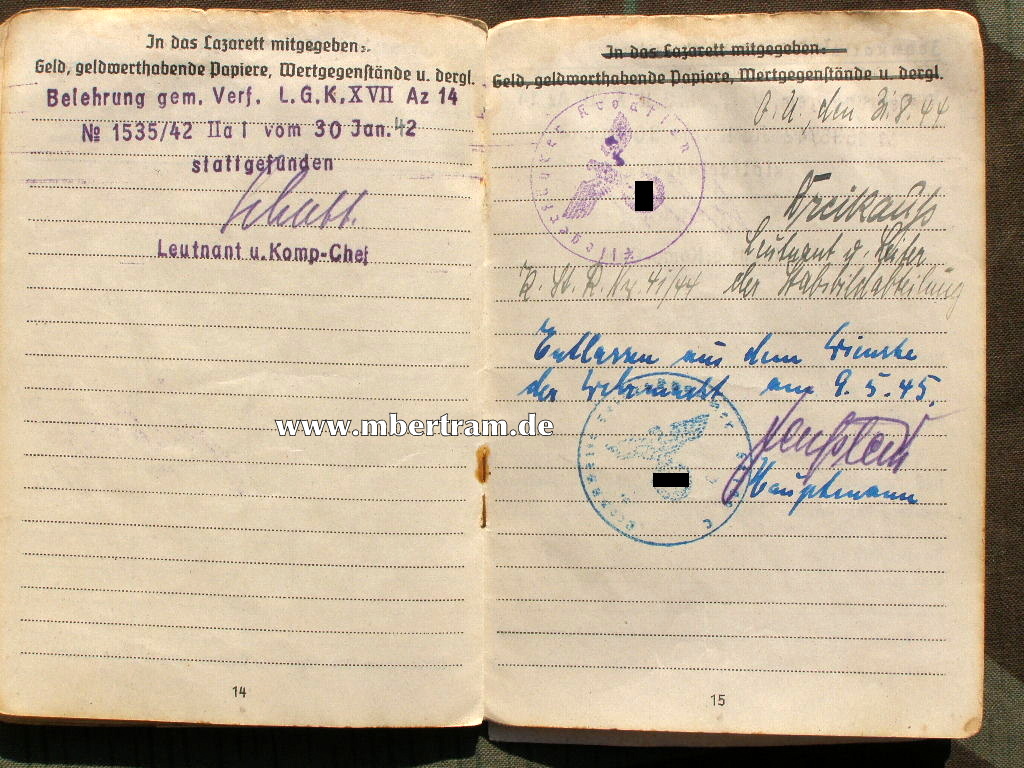 In das Lazarett mitgegeben:
Geld, geldwerthabende Papiere, Wertgegenstände u. dergl.
Belehrung gem. Verf. L.G.K. XVII Az 14
№ 1535/42 IIa I vom 30 Jan. 42
stattgefunden
Leutnant u. Komp-Chef
14
In das Lazarett mitgegeben:
Geld, geldwerthabende Papiere, Wertgegenstände u. dergl.
O.U., den 3.8.44
Fliegerführer Kroatien
Leutnant u. Leiter
der Stabsbildabteilung
Entlassen aus dem Dienste
der Wehrmacht am 9.5.45.
Hauptmann
15
www.mbertram.de